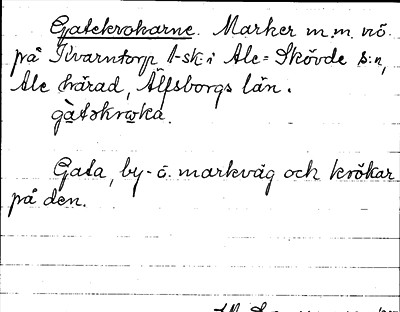 Gatekrokarne. Marker m.m. nö.
på Kvarntorp 1-sk i Ale-Skövde s:n,
Ale härad, Älfsborgs län.
gàtəkrωka.
Gata, by- o. markväg och krökar
på den.